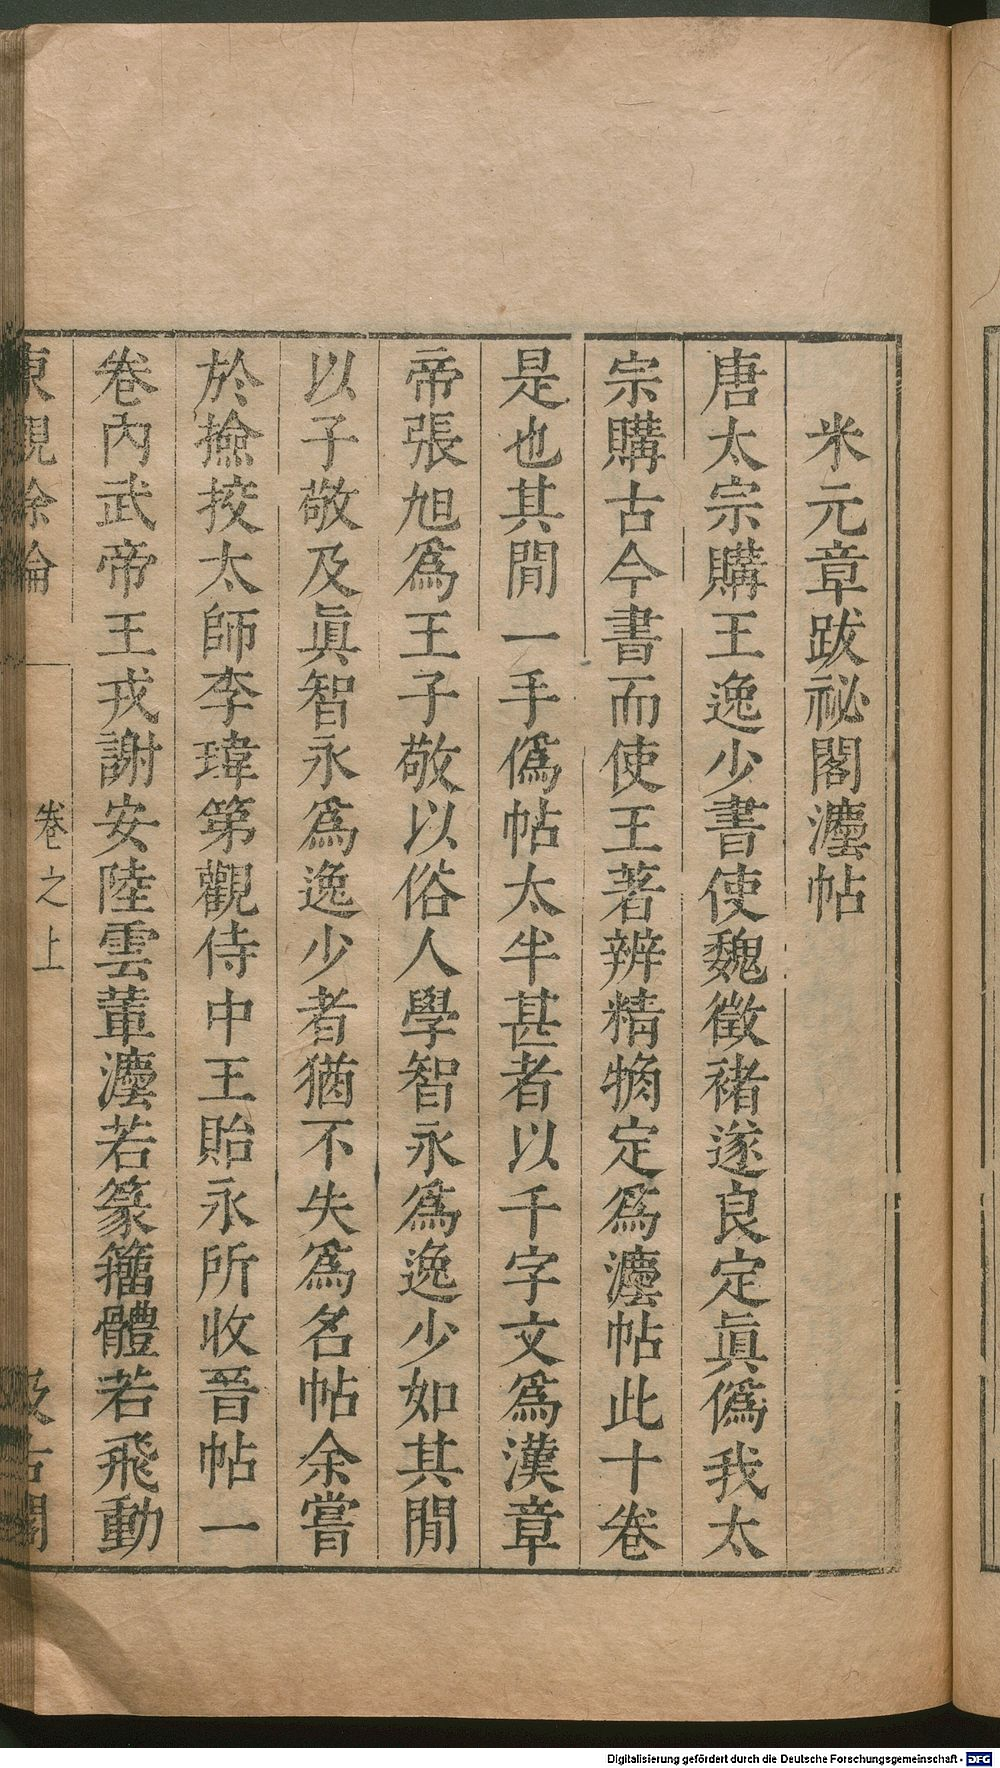 米元章跋祕閣灋帖
唐太宗購王逸少書使魏徵褚遂良定眞僞我太
宗購古今書而使王著辨精觕定爲灋帖此十卷
是也其閒一手僞帖太半甚者以千字文爲漢章
帝張旭爲王子敬以俗人學智永爲逸少如其閒
以子敬及眞智永爲逸少者猶不失爲名帖余嘗
於撿挍太師李瑋第觀侍中王貽永所收晉帖一
卷內武帝王戎謝安陸雲軰灋若篆籀體若飛動
東觀餘論 卷之上 汲古閣
Digitalisierung gefördert durch die Deutsche Forschungsgemeinschaft - DFG